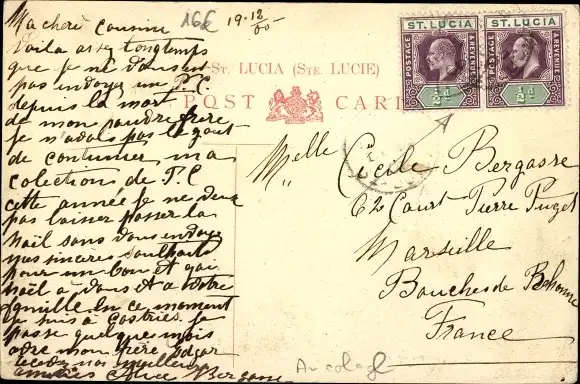 16€
19-12
05
Ma chère Cousine
Voila assez longtemps
que je ne vous ai
pas envoyé un P.C
depuis la mort
de mon
je n'avais pas le gout
de continuer ma
colection de P.C
cette année je ne veux
pas laisser passer la
Noël sans vous envoyer
mes sincères souhaits
pour un bon et gai
Noël à vous et a votre
famille en ce moment
je suis à Castries je
passe quelques mois
avec mon frère Edgar
recevez nos meilleurs
amitiés Alice Bergasse
ST. LUCIA (STE. LUCIE)
POST CARD
ST. LUCIA
POSTAGE
& REVENUE
½d
ST. LUCIA
POSTAGE
& REVENUE
½d
Melle Cécile Bergasse
62 Court Pierre Puget
Marseille
Bouches de Rhonne
France